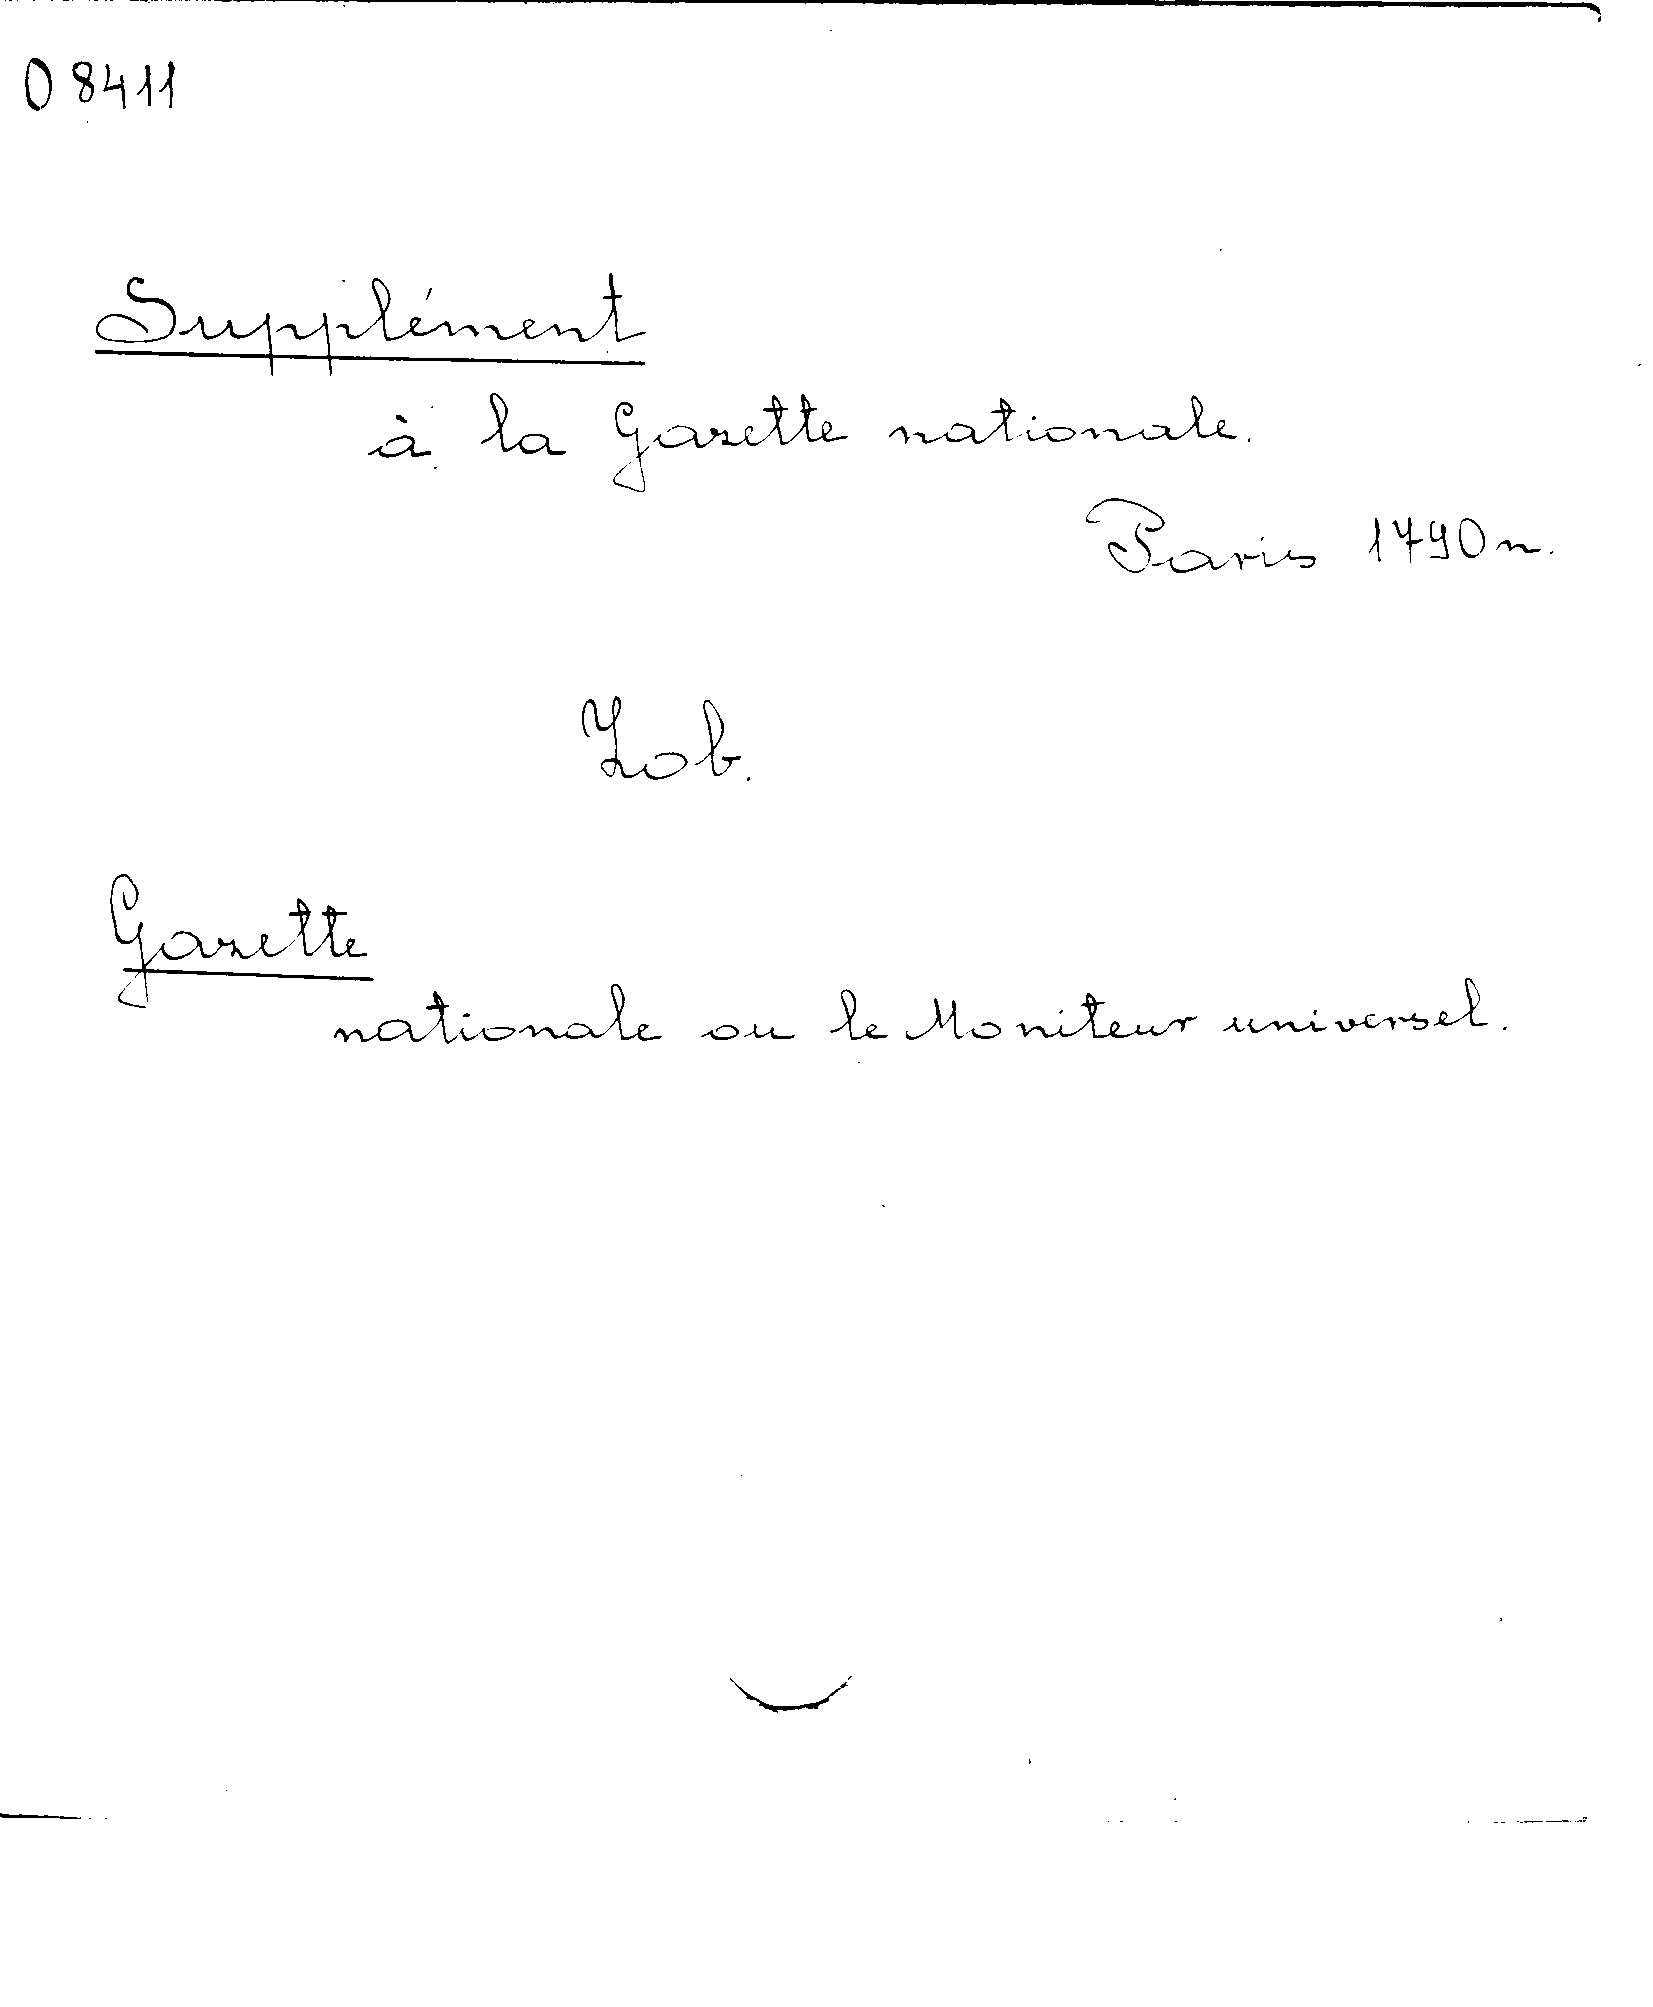 08411
Supplément
à la Gazette nationale.
Paris 1790 n.
Zob.
Gazette
nationale ou le Moniteur universel.